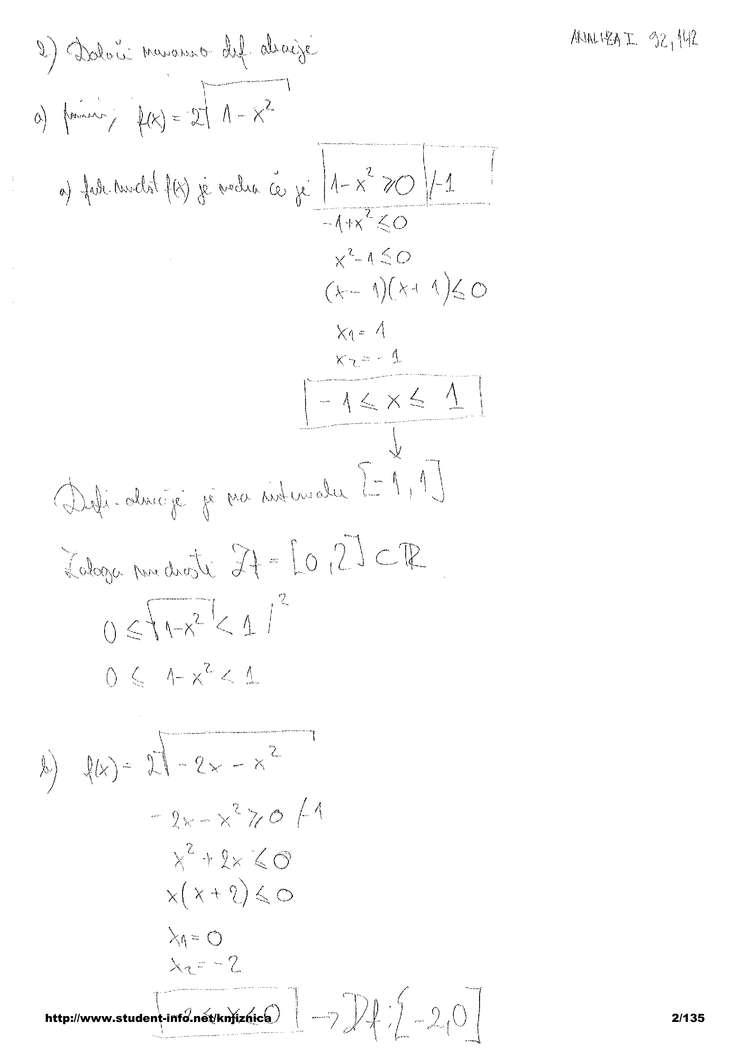 ANALIZA I 92,142
2) Določi naravno def. območje
a) f(x) = 2√(1 - x²)
a) f(x) je realna če je 1 - x² ≥ 0 /·-1
-1 + x² ≤ 0
x² - 1 ≤ 0
(x - 1)(x + 1) ≤ 0
x₁ = 1
x₂ = -1
-1 ≤ x ≤ 1
↓
Defi. območje je na intervalu [-1, 1]
Zaloga vrednosti Zf = [0, 2] ⊂ ℝ
0 ≤ √(1-x²) < 1 /²
0 ≤ 1-x² < 1
b) f(x) = 2√(-2x - x²)
-2x - x² ≥ 0 /·-1
x² + 2x ≤ 0
x(x + 2) ≤ 0
x₁ = 0
x₂ = -2
-2 ≤ x ≤ 0 → Df: [-2, 0]
http://www.student-info.net/knjiznica 2/135